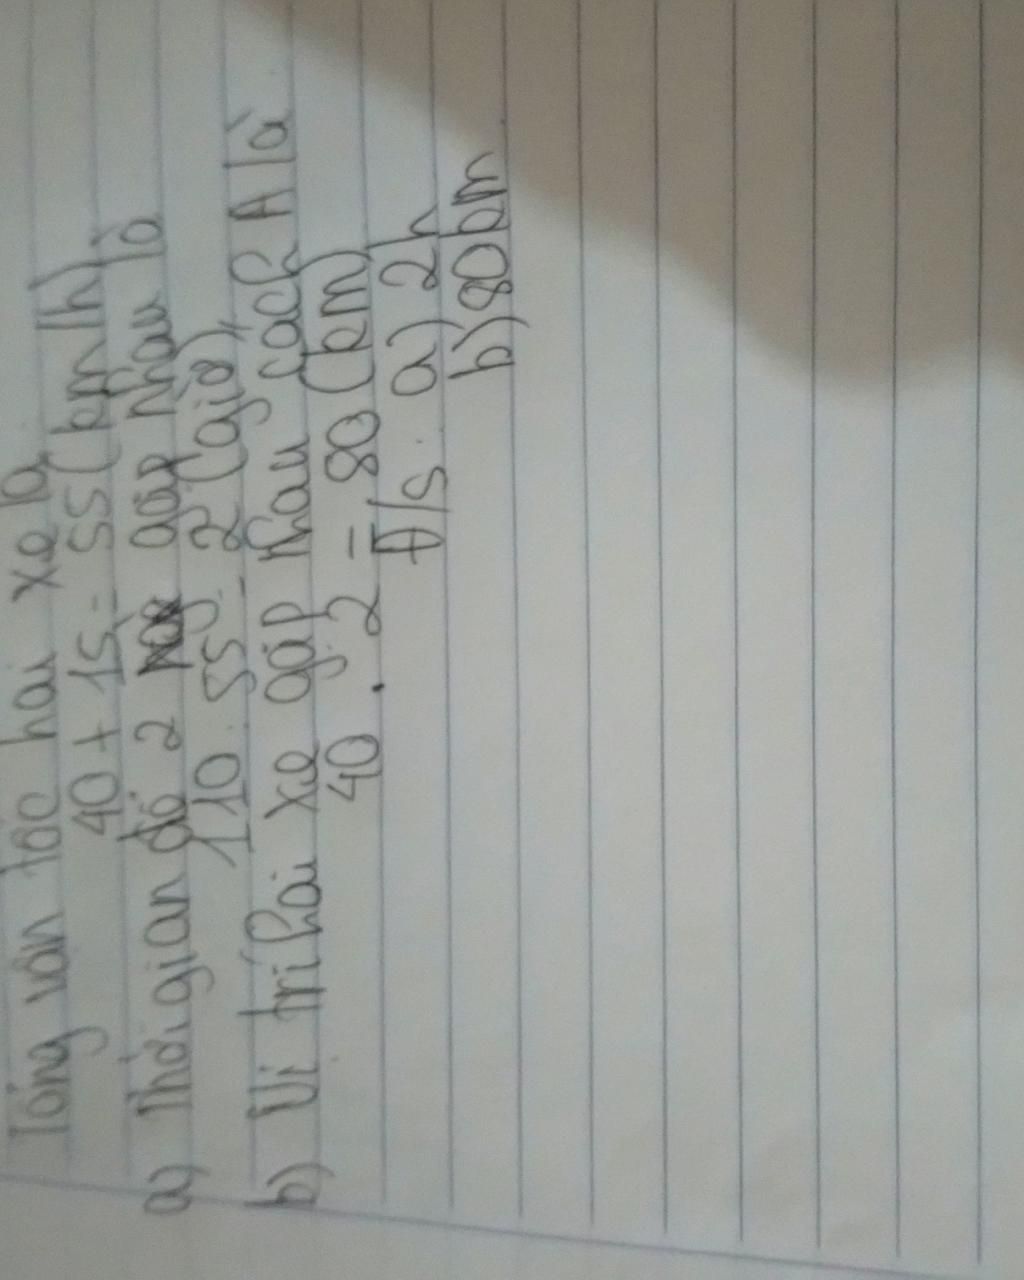 Tổng vân tốc hai xe là
40 + 15 = 55 (km/h)
a) Thời gian để 2 gặp nhau là
110 : 55 = 2 (giờ)
b) Vị trí hai xe gặp nhau cách A là
40 . 2 = 80 (km)
Đ/s: a) 2h
b) 80km